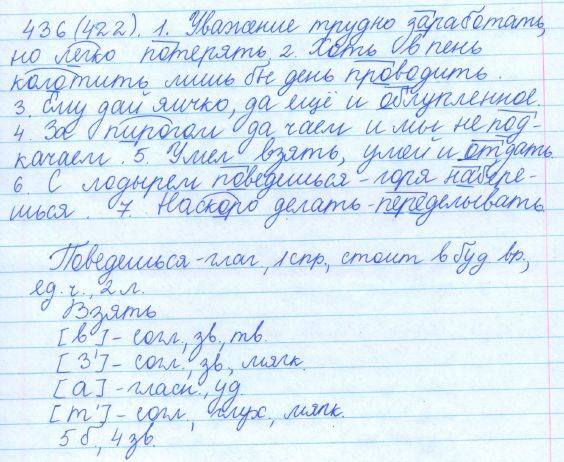 436 (422). 1. Уважение трудно заработать,
но легко потерять. 2. Хоть в пень
колотить, лишь бы день проводить.
3. Ему дай яичко, да ещё и облупленное.
4. За пирогом да чаем и мы не под-
качаем. 5. Умел взять, умей и отдать.
6. С лодырем поведешься - горя набере-
шься. 7. Наскоро делать - переделывать.
Поведешься - глаг, 1 спр., стоит в буд вр.,
ед. ч., 2 л.
Взять
[в] - согл, зв, тв.
[з'] - согл., зв, мягк.
[а] - гласн., уд.
[т'] - согл, глух, мягк.
5 б., 4 зв.